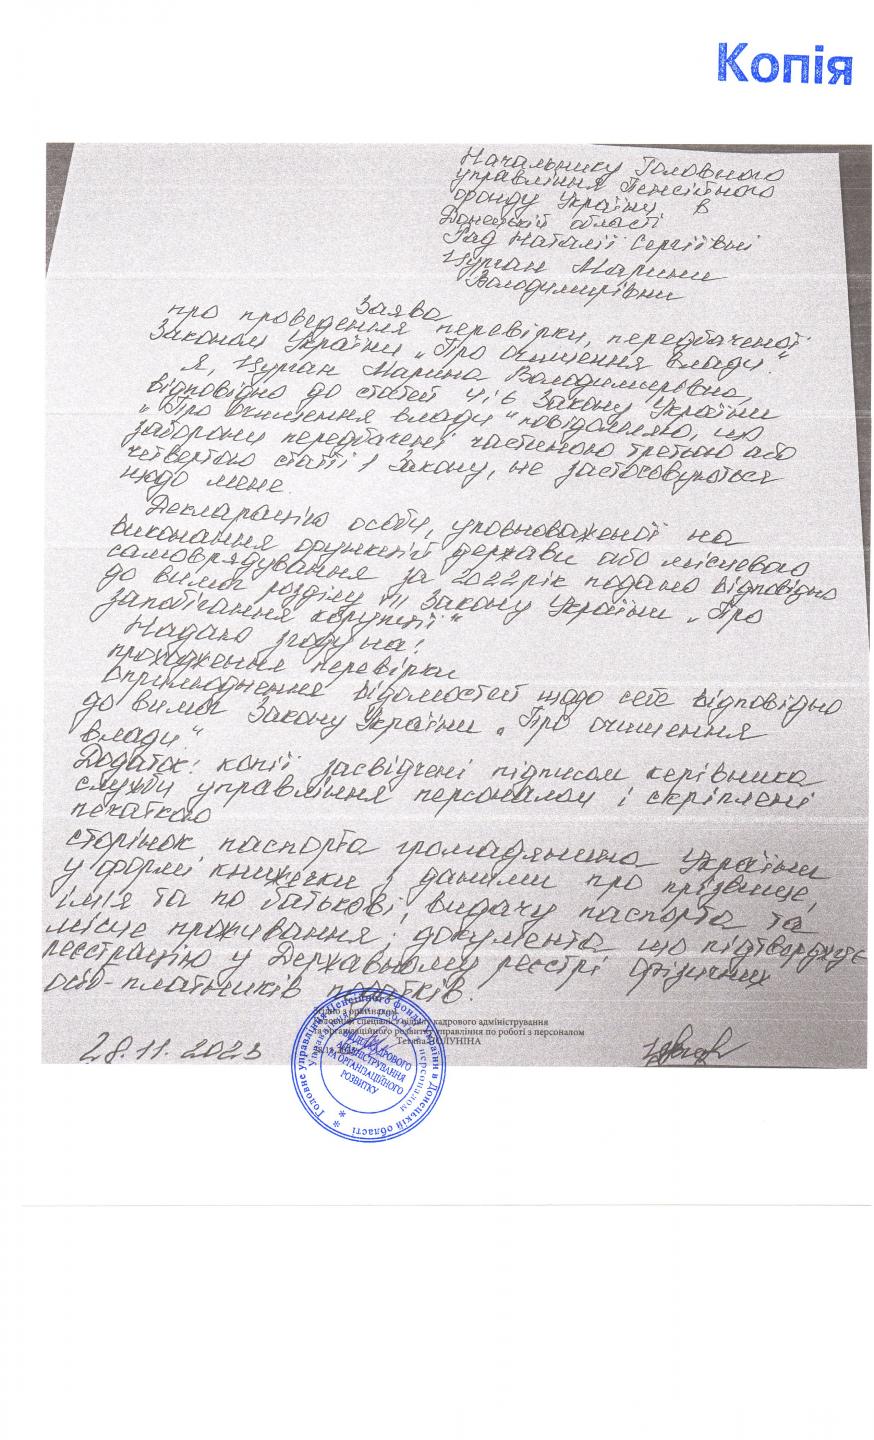 Копія
Начальнику Головного
управління Пенсійного
фонду України в
Донецькій області
Рад Наталії Сергіївні
Цурган Марини
Володимирівни
Заява
про проведення перевірки, передбаченої
Законом України „Про очищення влади"
Я, Цурган Марина Володимирівна,
відповідно до статей 4 і 6 Закону України
„Про очищення влади" повідомляю, що
заборони передбачені частиною третьою або
четвертою статті 1 Закону, не застосовуються
щодо мене.
Декларацію особи, уповноваженої на
виконання функцій держави або місцевого
самоврядування за 2022 рік подано відповідно
до вимог розділу VII Закону України „Про
запобігання корупції"
Надаю згоду на:
проходження перевірки
оприлюднення відомостей щодо себе відповідно
до вимог Закону України „Про очищення
влади."
Додаток: копії засвідчені підписом керівника
служби управління персоналом і скріплені
печаткою
сторінок паспорта громадянина України
у формі книжечки з даними про прізвище,
ім'я та по батькові, видачу паспорта та
місце проживання; документа що підтверджує
реєстрацію у Державному реєстрі фізичних
осіб-платників податків.
Згідно з оригіналом
Головний спеціаліст відділу кадрового адміністрування
та організаційного розвитку управління по роботі з персоналом
Тетяна
28.11.2023
Головне управління Пенсійного фонду України в Донецькій області
Управління по роботі з персоналом
ВІДДІЛ КАДРОВОГО
АДМІНІСТРУВАННЯ
ТА ОРГАНІЗАЦІЙНОГО
РОЗВИТКУ